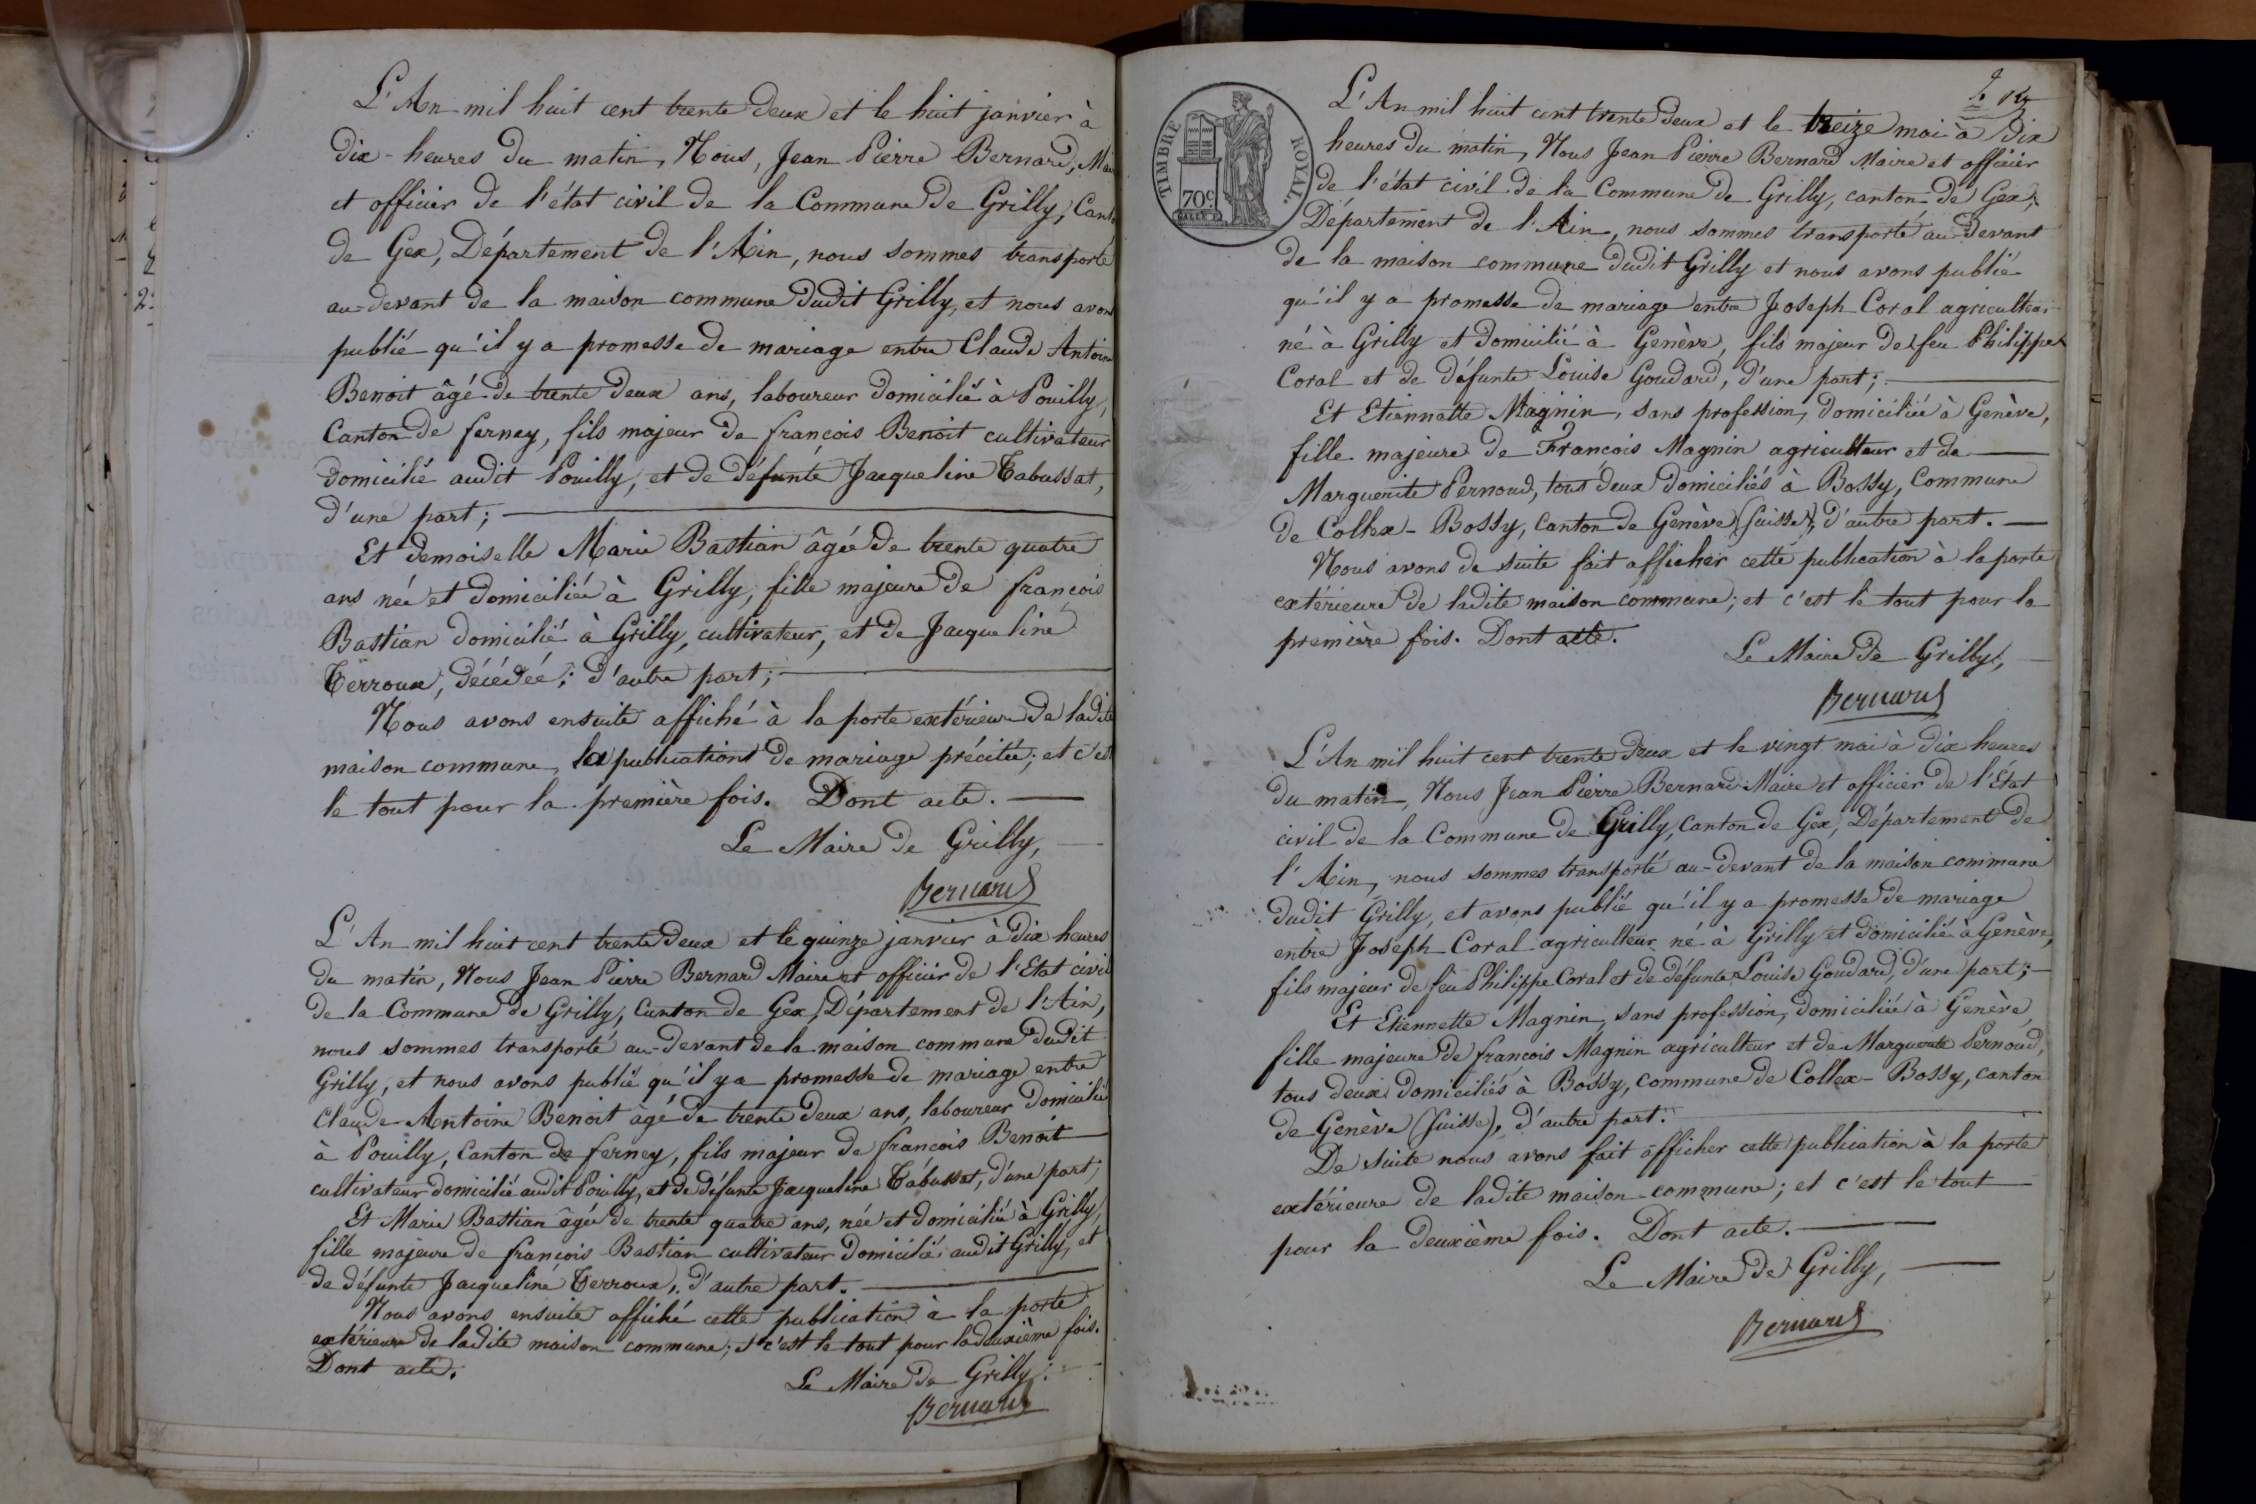 L'An mil huit cent trente deux et le huit janvier à
dix-heures du matin, Nous, Jean Pierre Bernard, Mai
et officier de l'état civil de la Commune de Grilly, Cant
de Gex, Département de l'Ain, nous sommes transporté
au-devant de la maison commune dudit Grilly, et nous avon
publié qu'il y a promesse de mariage entre Claude Antoine
Benoit âgé de trente deux ans, laboureur domicilié à Pouilly,
Canton de ferney, fils majeur de françois Benoit cultivateur
domicilié audit Pouilly, et de défunte Jacqueline Tabussat,
d'une part;
Et demoiselle Marie Bastian âgée de trente quatre
ans née et domiciliée à Grilly, fille majeure de françois
Bastian domicilié à Grilly, cultivateur, et de Jacqueline
Terroux, décédée; d'autre part;
Nous avons ensuite affiché à la porte extérieure de ladite
maison commune, la publication de mariage précitée; et c'est
le tout pour la première fois. Dont acte.
Le Maire de Grilly,
Bernard
L'An mil huit cent trente deux et le quinze janvier à dix heures
du matin, Nous Jean Pierre Bernard Maire et officier de l'Etat civil
de la Commune de Grilly, Canton de Gex, Département de l'Ain,
nous sommes transporté au-devant de la maison commune dudit
Grilly, et nous avons publié qu'il y a promesse de mariage entre
Claude Antoine Benoit âgé de trente deux ans, laboureur domicilié
à Pouilly, Canton de ferney, fils majeur de françois Benoit
cultivateur domicilié audit Pouilly, et de défunte Jacqueline Tabussat, d'une part;
Et Marie Bastian âgée de trente quatre ans, née et domiciliée à Grilly,
fille majeure de françois Bastian cultivateur domicilié audit Grilly, et
de défunte Jacqueline Terroux, d'autre part.
Nous avons ensuite affiché cette publication à la porte
extérieure de ladite maison commune; et c'est le tout pour la deuxième fois.
Dont acte.
Le Maire de Grilly.
Bernard
TIMBRE ROYAL
70c
L'An mil huit cent trente deux et le treize mai à dix
heures du matin, Nous Jean Pierre Bernard Maire et officier
de l'état civil de la Commune de Grilly, canton de Gex,
Département de l'Ain, nous sommes transporté au-devant
de la maison commune dudit Grilly et nous avons publié
qu'il y a promesse de mariage entre Joseph Coral agriculteur
né à Grilly et domicilié à Genève, fils majeur de feu Philippe
Coral et de défunte Louise Goudard, d'une part;
Et Etiennette Magnin, sans profession, domiciliée à Genève,
fille majeure de François Magnin agriculteur et de
Marguerite Pernoud, tous deux domiciliés à Bossy, Commune
de Collex-Bossy, Canton de Genève (Suisse), d'autre part.
Nous avons de suite fait afficher cette publication à la porte
extérieure de ladite maison commune; et c'est le tout pour la
première fois. Dont acte.
Le Maire de Grilly,
Bernard
L'An mil huit cent trente deux et le vingt mai à dix heures
du matin, Nous Jean Pierre Bernard Maire et officier de l'État
civil de la Commune de Grilly, Canton de Gex, Département de
l'Ain, nous sommes transporté au-devant de la maison commune
dudit Grilly, et avons publié qu'il y a promesse de mariage
entre Joseph Coral agriculteur né à Grilly et domicilié à Genève,
fils majeur de feu Philippe Coral et de défunte Louise Goudard, d'une part;
Et Etiennette Magnin, sans profession, domiciliée à Genève,
fille majeure de françois Magnin agriculteur et de Marguerite Pernoud,
tous deux domiciliés à Bossy, commune de Collex-Bossy, canton
de Genève (Suisse), d'autre part.
De suite nous avons fait afficher cette publication à la porte
extérieure de ladite maison commune; et c'est le tout
pour la deuxième fois. Dont acte.
Le Maire de Grilly,
Bernard